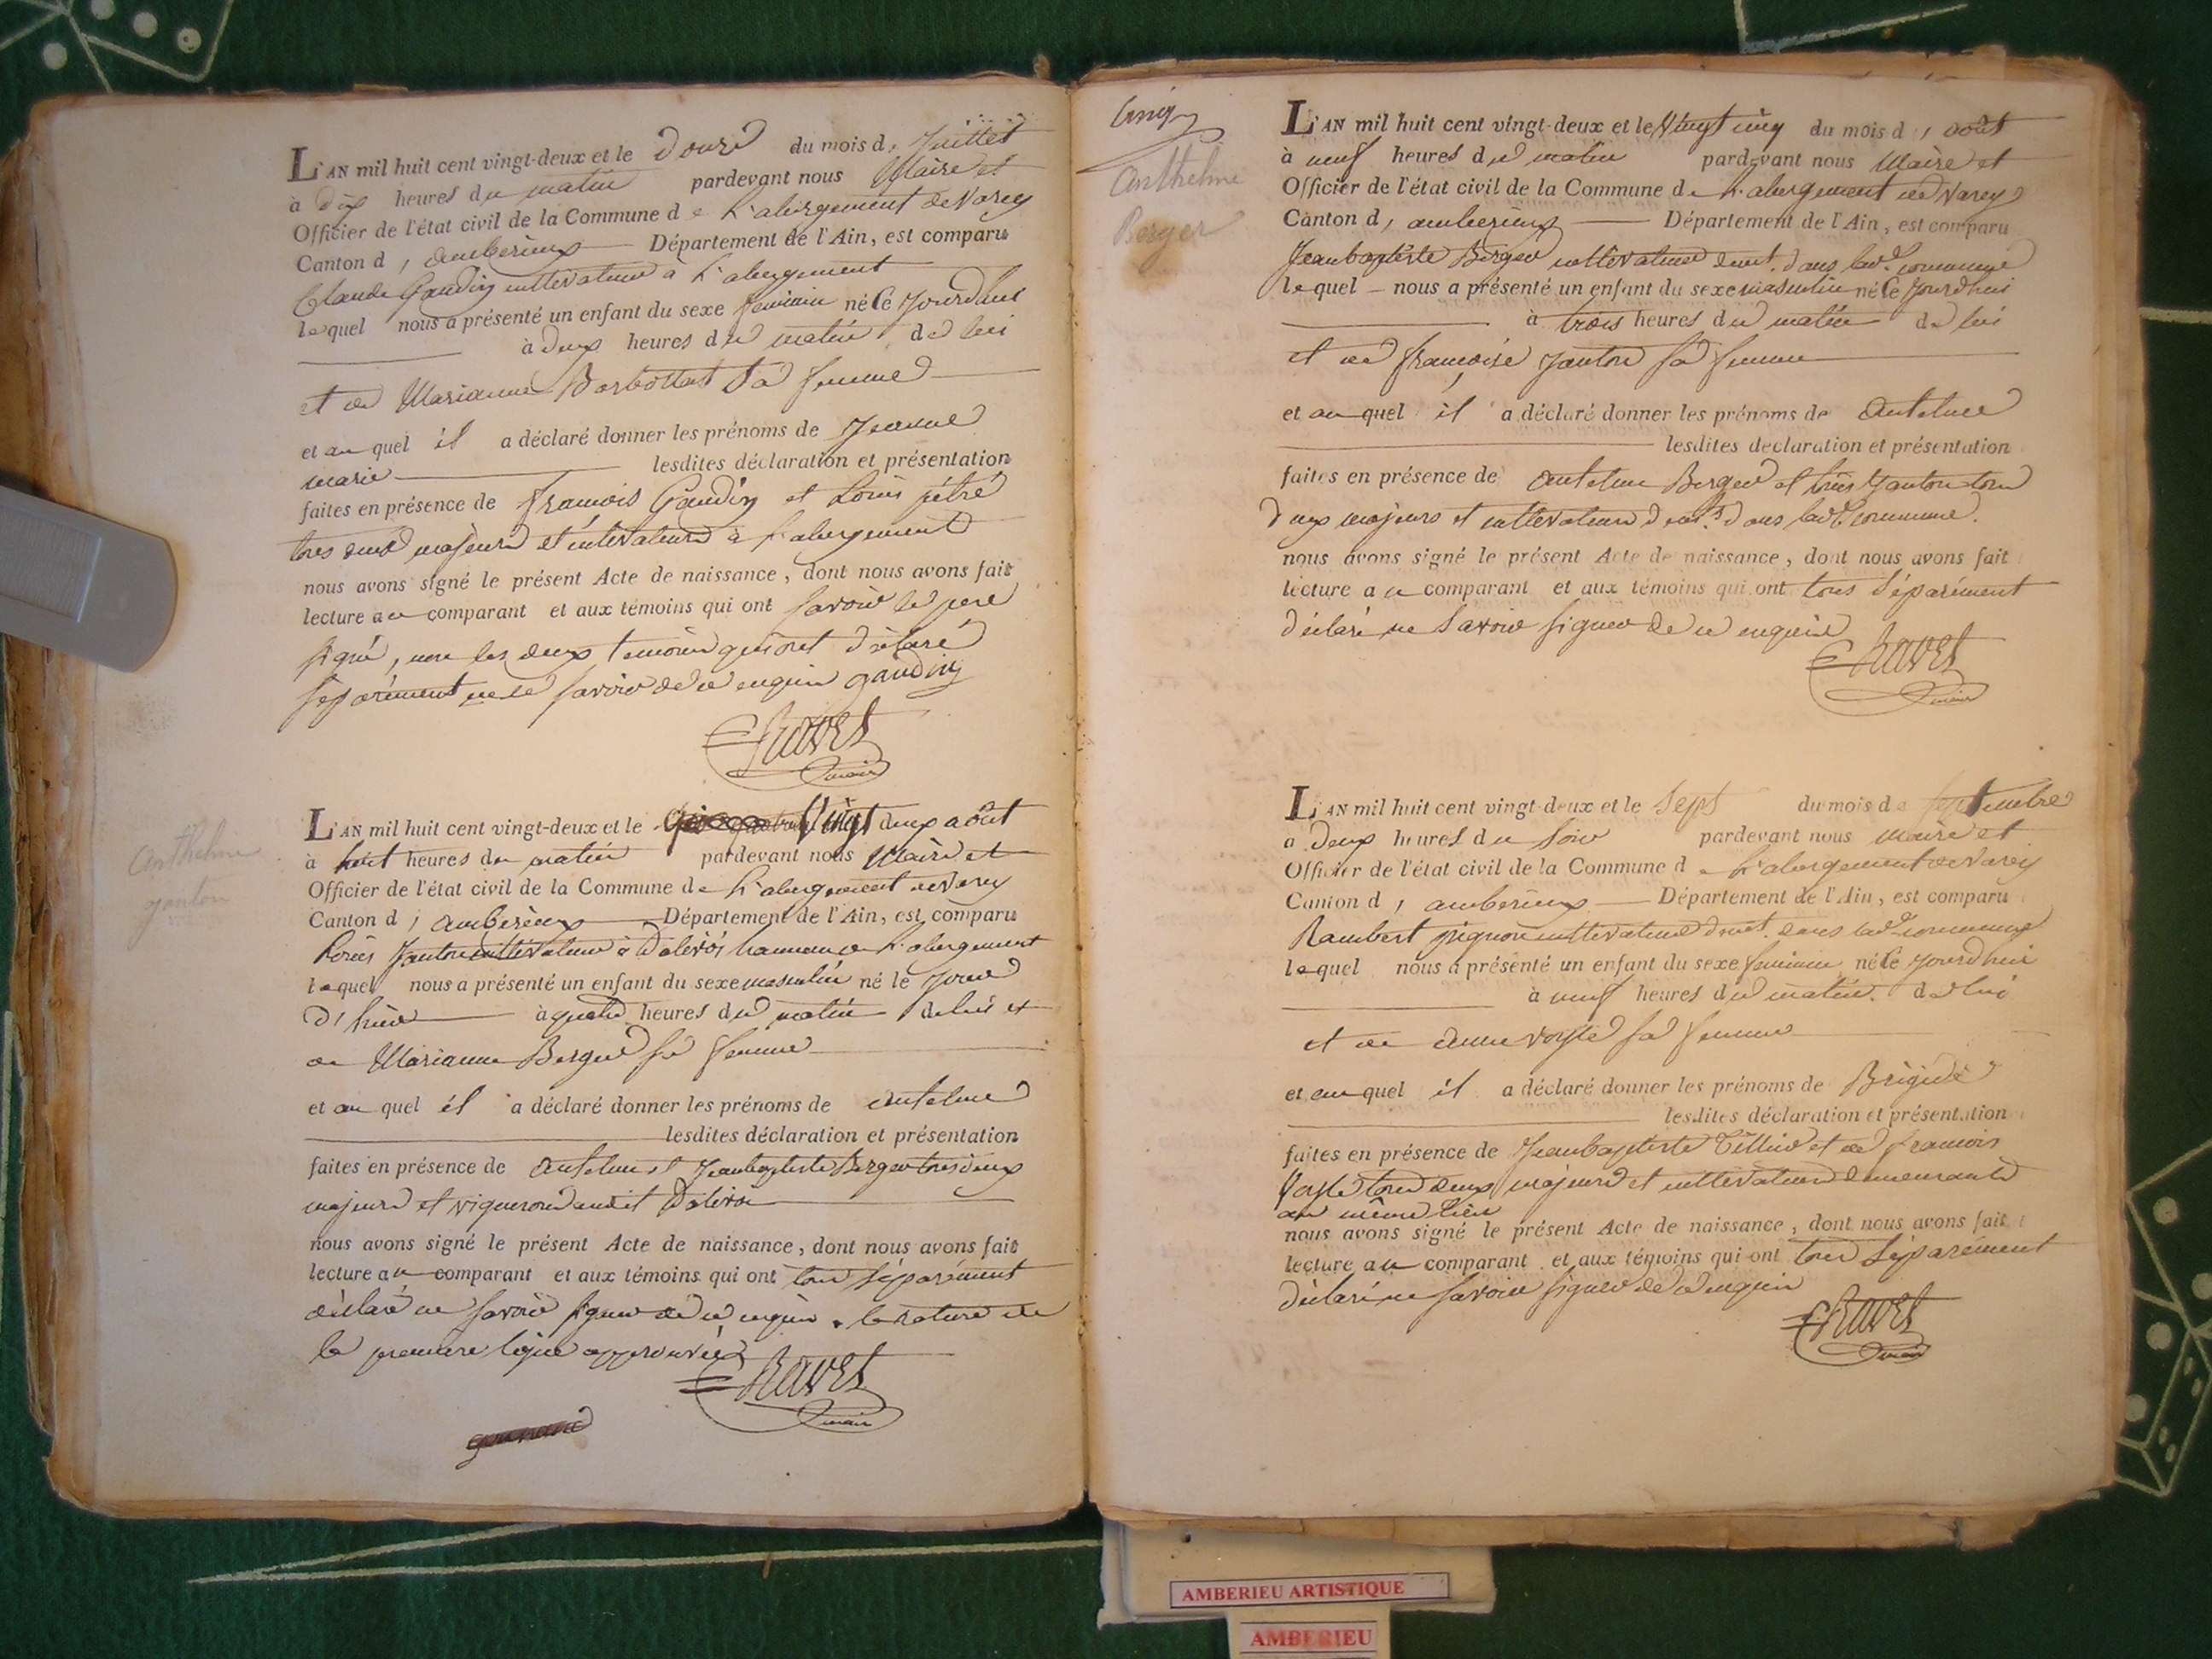 L'AN mil huit cent vingt-deux et le Douze du mois de Juillet
à dix heures du matin pardevant nous Maire et
Officier de l'état civil de la Commune de L'abergement de Varey
Canton d'amberieux Département de l'Ain, est comparu
Claude Gaudin cultivateur à L'abergement
lequel nous a présenté un enfant du sexe feminin né le jourdhui
à deux heures du matin, de lui
et de Marianne Borbollat sa femme
et au quel il a déclaré donner les prénoms de Jeanne
marie lesdites déclaration et présentation
faites en présence de françois Gaudin et Louis
tous deux majeurs et cultivateurs à L'abergement
nous avons signé le présent Acte de naissance, dont nous avons fait
lecture au comparant et aux témoins qui ont savoir le pere
signé, non les deux temoins qui ont déclaré
séparément ne le savoir de ce enquis gaudin
Ravet
maire
anthelme
janton
L'AN mil huit cent vingt-deux et le Vingt deux août
à huit heures du matin pardevant nous Maire et
Officier de l'état civil de la Commune de L'abergement de Varey
Canton d'amberieux Département de l'Ain, est comparu
Louis Janton cultivateur à Dalivoi hameau de L'abergement
lequel nous a présenté un enfant du sexe masculin né le jour
d'hui à quatre heures du matin de lui et
de Marianne Berger sa femme
et au quel il a déclaré donner les prénoms de antelme
lesdites déclaration et présentation
faites en présence de antelme et Jeanbaptiste Berger tous deux
majeurs et vignerons audit Dalivoi
nous avons signé le présent Acte de naissance, dont nous avons fait
lecture au comparant et aux témoins qui ont tous séparément
déclaré ne savoir signer de ce enquis. la rature de
la premiere ligne approuvée
Ravet
maire
cinq
anthelme
Berger
L'AN mil huit cent vingt-deux et le Vingt cinq du mois d'août
à neuf heures du matin pardevant nous Maire et
Officier de l'état civil de la Commune de L'abergement de Varey
Canton d'amberieux Département de l'Ain, est comparu
Jeanbaptiste Berger cultivateur demt. dans lade. commune
lequel nous a présenté un enfant du sexe masculin né le jourdhui
à trois heures du matin de lui
et de françoise janton sa femme
et au quel il a déclaré donner les prénoms de antelme
lesdites declaration et présentation
faites en présence de antelme Berger et louis Janton tous
deux majeurs et cultivateurs demts. dans lade. commune.
nous avons signé le présent Acte de naissance, dont nous avons fait
lecture au comparant et aux témoins qui ont tous séparément
déclaré ne savoir signer de ce enquis
Ravet
maire
L'AN mil huit cent vingt-deux et le Sept du mois de septembre
à Deux heures du soir pardevant nous maire et
Officier de l'état civil de la Commune de L'abergement de Varey
Canton d'amberieux Département de l'Ain, est comparu
Rambert pignon cultivateur demt. dans lade. commune
lequel nous a présenté un enfant du sexe feminin né le jourdhui
à neuf heures du matin. de lui
et de anne voysle sa femme
et au quel il a déclaré donner les prénoms de Brigide
lesdites déclaration et présentation
faites en présence de Jeanbaptiste Tillier et de francois
Voysle tous deux majeurs et cultivateurs demeurants
au même lieu
nous avons signé le présent Acte de naissance, dont nous avons fait
lecture au comparant et aux témoins qui ont tous séparément
déclaré ne savoir signer de ce enquis
Ravet
maire
AMBERIEU ARTISTIQUE
AMBERIEU